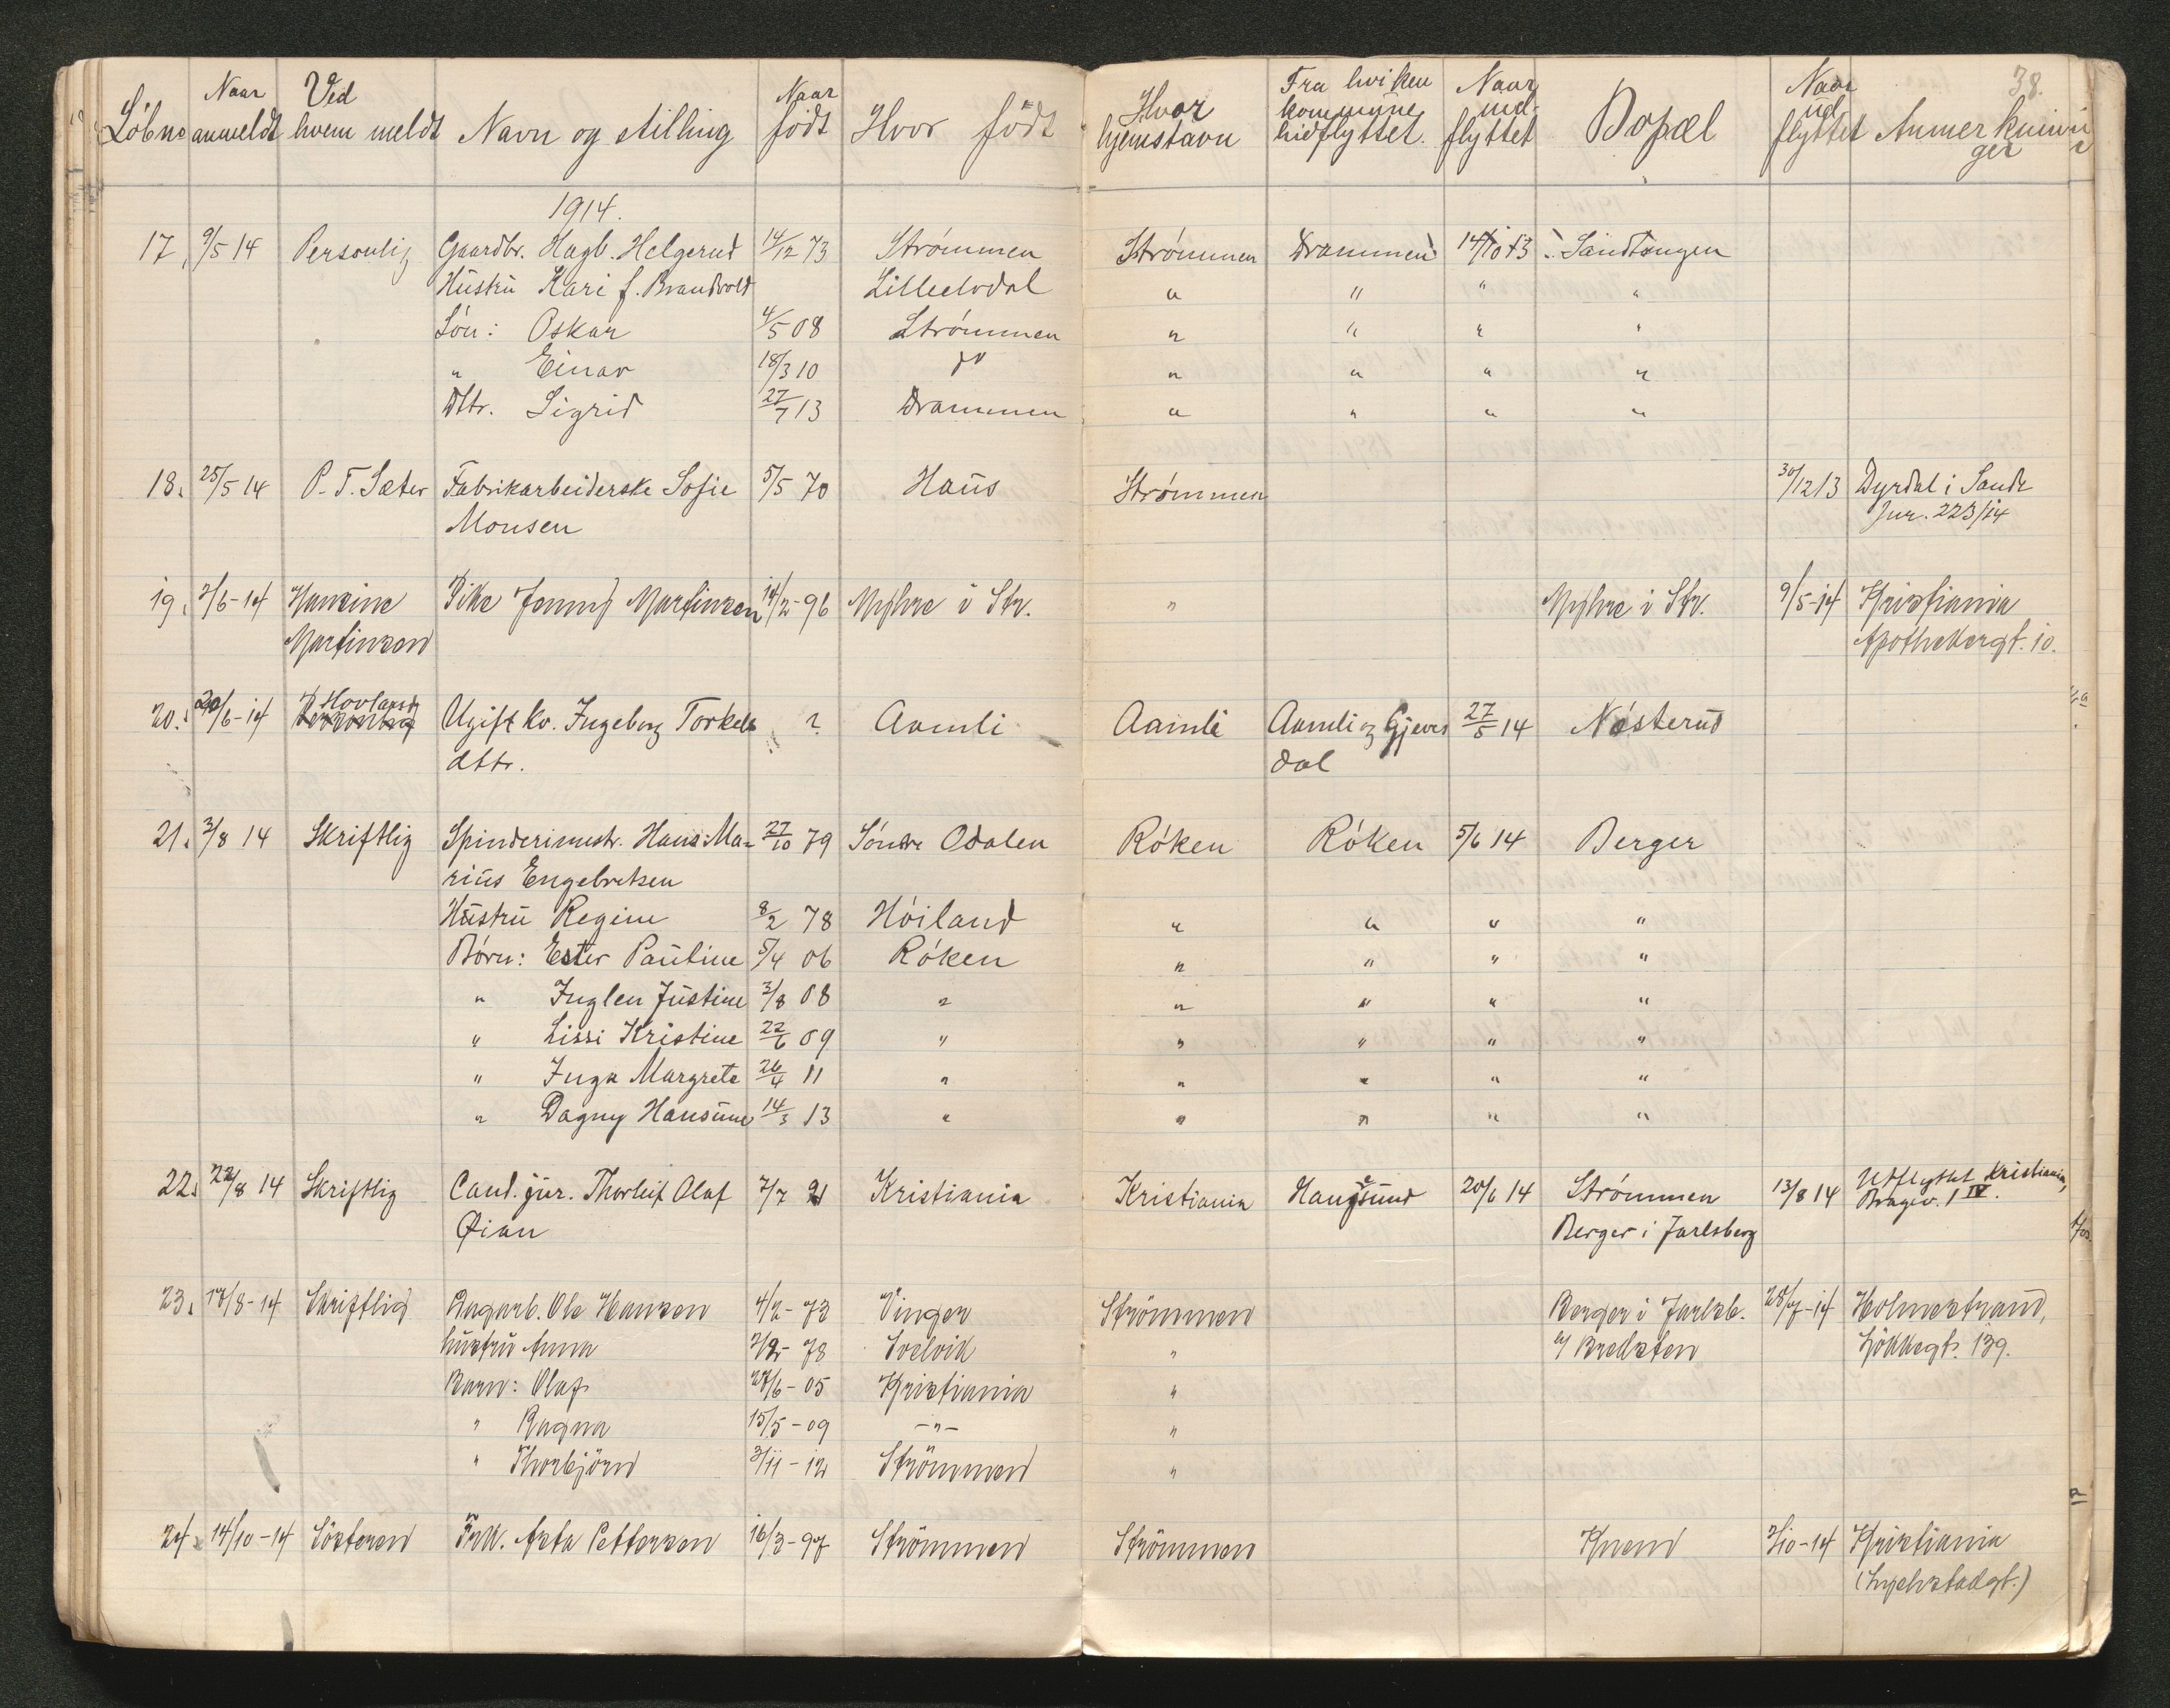 38.
Løbno Naar anmeldt Ved hvem meldt Navn og stilling Naar født Hvor født Hvor hjemstavn Fra hviken kommune hidflyttet. Naar ind-flyttet Bopæl Naar ud flyttet Anmerkninger
1914.
17. 9/5 14 Personlig Gaardbr. Hagb. Helgerud 14/12 73 Strømmen Strømmen Drammen 14/10 13 Sandtangen
Hustru Kari f. Brandvold Lilleelvdal " " " "
Søn: Oskar 4/5 08 Strømmen " " " "
" Einar 18/3 10 do " " " "
Dtr. Sigrid 27/7 13 Drammen " " " "
18. 25/5 14 P. T. Sæter Fabrikarbeiderske Sofie 5/5 70 Haus Strømmen 30/12 13 Dyrdal i Sande
Monsen Jnr. 223/14
19. 2/6-14 Hansine Pike Jenny Martinsen 14/2-96 Myhre i Str. " Myhre i Str. 9/5-14 Kristiania
Martinsen Apothekergt. 10.
20. 20/6-14 Hovland Ugift kv. Ingeborg Torkels ? Aamli Aamli Aamli og Gjeves 27/5 14 Nøsterud
dttr. dal
21. 3/8 14 Skriftlig Spinderimestr. Hans Ma- 27/10 79 Søndre Odalen Røken Røken 5/6 14 Berger
rius Engebretsen
Hustru Regine 8/2 78 Høiland " " " "
Børn: Ester Pauline 5/4 06 Røken " " " "
" Inglen Justine 3/8 08 " " " " "
" Lissi Kristine 22/6 09 " " " " "
" Inga Margrete 26/4 11 " " " " "
" Dagny Hansine 14/3 13 " " " " "
22. 22/8 14 Skriftlig Cand. jur. Thorleif Olaf 7/7 91 Kristiania Kristiania Haugesund 20/6 14 Strømmen 13/8 14 Utflyttet Kristiania,
Øian Berger i Jarlsberg Bragev. 1 IV.
23. 18/8-14 Skriftlig Dagarb. Ole Hansen 4/2-73 Vinger Strömmen Berger i Jarlsb. 28/7-14 Holmestrand,
hustru Anna 2/2-78 Svelvik " Bredsten Lökkegt. 139.
Barn: Olaf 27/6-05 Kristiania "
" Ragna 15/5-09 -"- "
" Thorbjörn 3/11-12 Strömmen "
24. 14/10-14 Søsteren Frk. Asta Pettersen 16/3-97 Strömmen Strömmen Knem 2/10-14 Kristiania